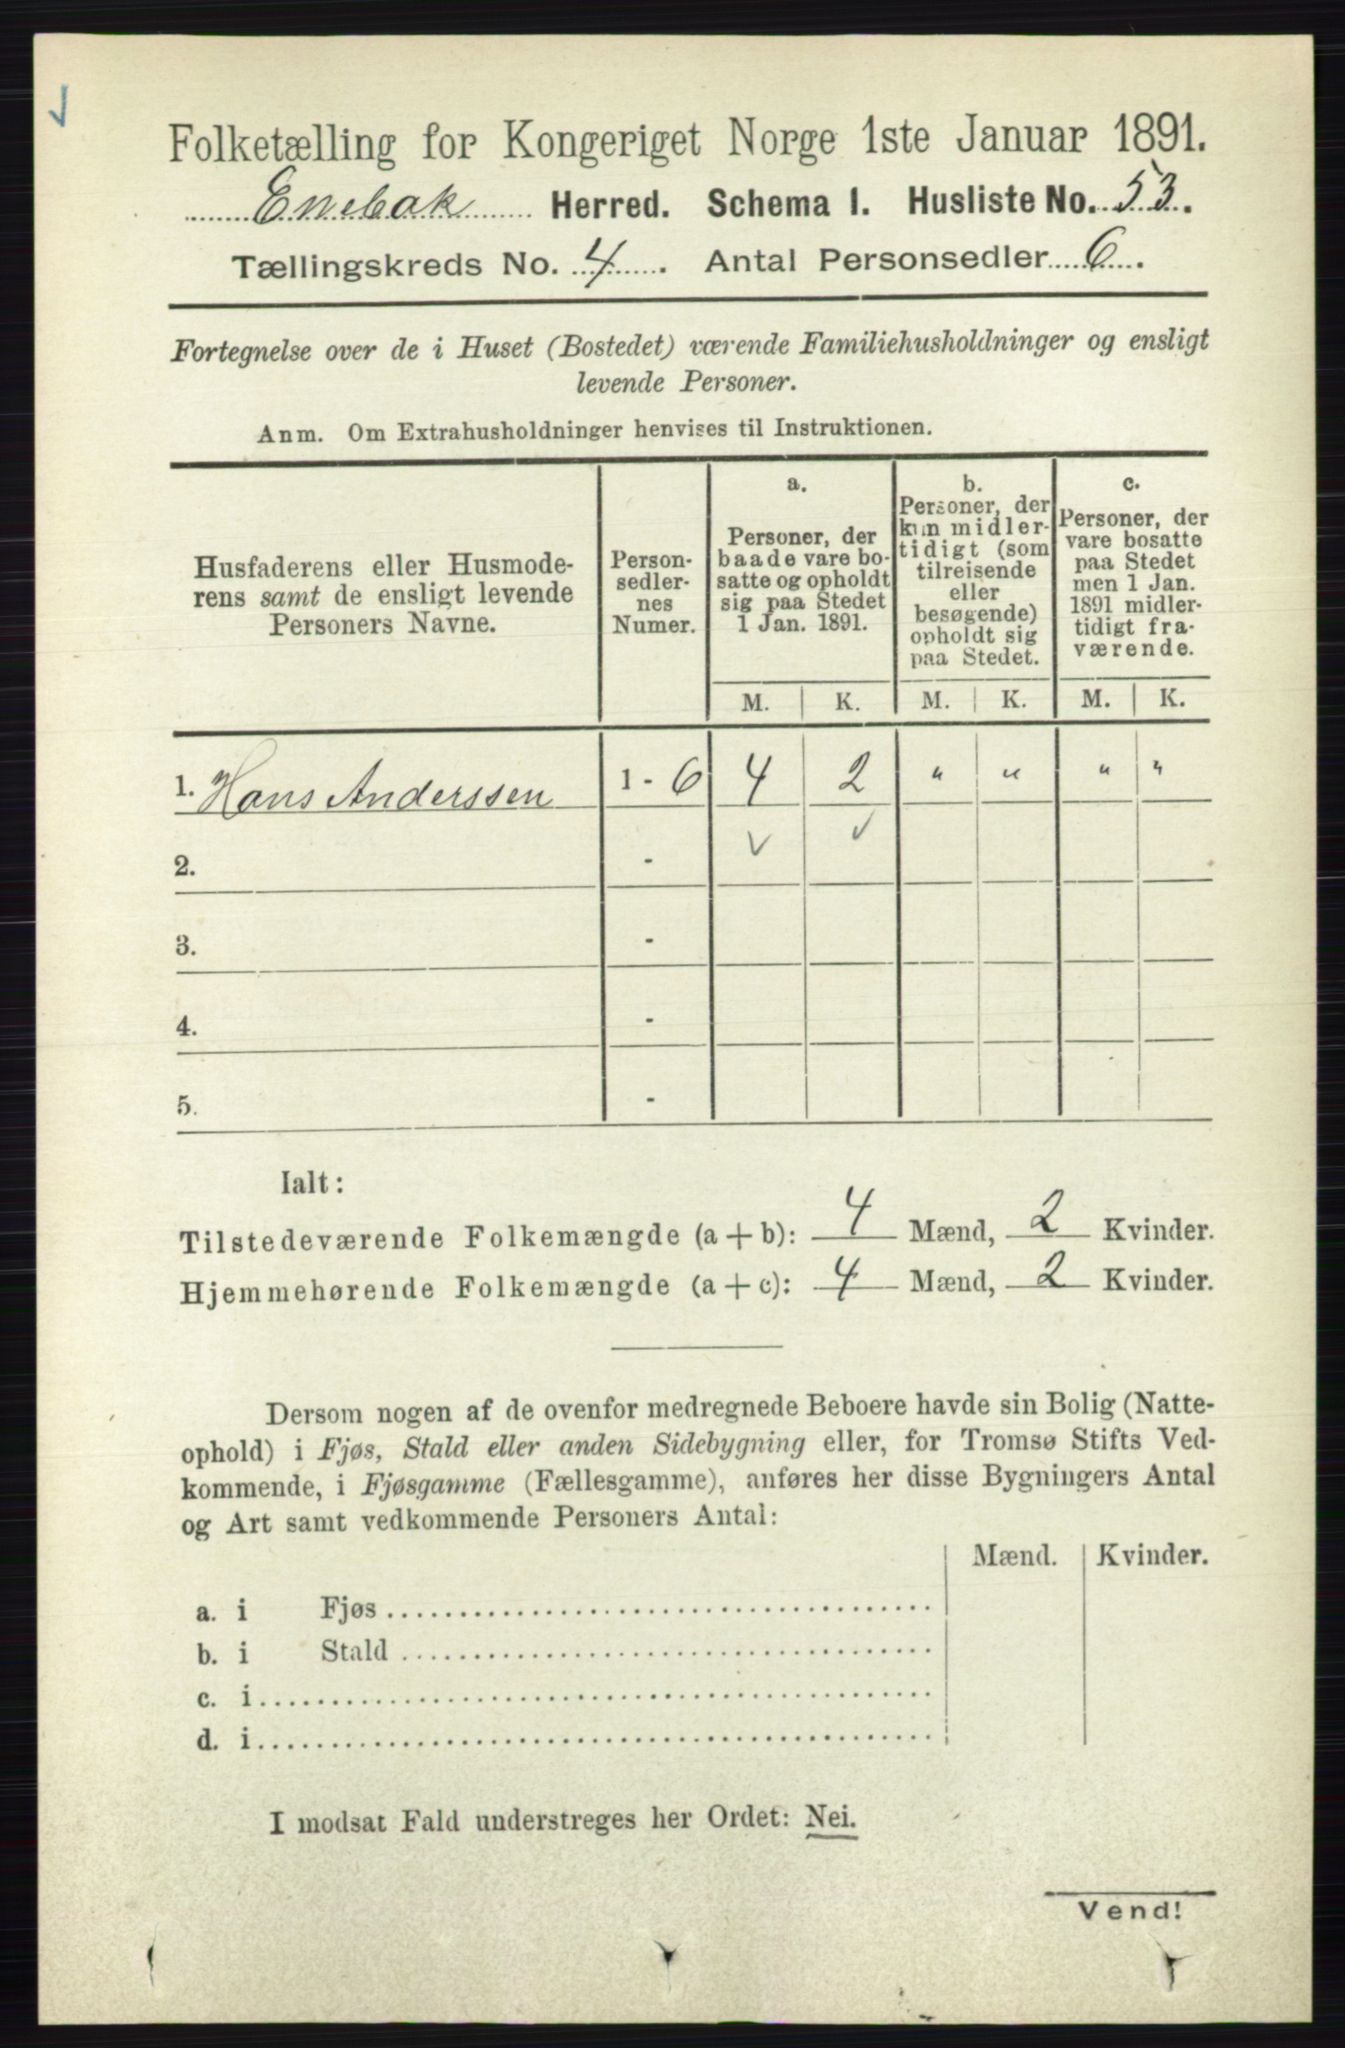 Folketælling for Kongeriget Norge 1ste Januar 1891.
Enebak Herred. Schema 1. Husliste No. 53.
Tællingskreds No. 4. Antal Personsedler 6.
Fortegnelse over de i Huset (Bostedet) værende Familiehusholdninger og ensligt
levende Personer.
Anm. Om Extrahusholdninger henvises til Instruktionen.
Husfaderens eller Husmode-
rens samt de ensligt levende
Personers Navne.
Person-
sedler-
nes
Numer.
a.
Personer, der
baade vare bo-
satte og opholdt
sig paa Stedet
1 Jan. 1891.
b.
Personer, der
kun midler-
tidigt (som
tilreisende
eller
besøgende)
opholdt sig
paa Stedet.
c.
Personer, der
vare bosatte
paa Stedet
men 1 Jan.
1891 midler-
tidigt fra-
værende.
M. K. M. K. M. K.
1. Hans Anderssen 1 - 6 4 2 " " " "
2. - ✓ ✓
3. -
4. -
5. -
Ialt:
Tilstedeværende Folkemængde (a + b): 4 Mænd, 2 Kvinder.
Hjemmehørende Folkemængde (a + c): 4 Mænd, 2 Kvinder.
Dersom nogen af de ovenfor medregnede Beboere havde sin Bolig (Natte-
ophold) i Fjøs, Stald eller anden Sidebygning eller, for Tromsø Stifts Ved-
kommende, i Fjøsgamme (Fællesgamme), anføres her disse Bygningers Antal
og Art samt vedkommende Personers Antal:
Mænd. Kvinder.
a. i Fjøs
b. i Stald
c. i
d. i
I modsat Fald understreges her Ordet: Nei.
Vend!